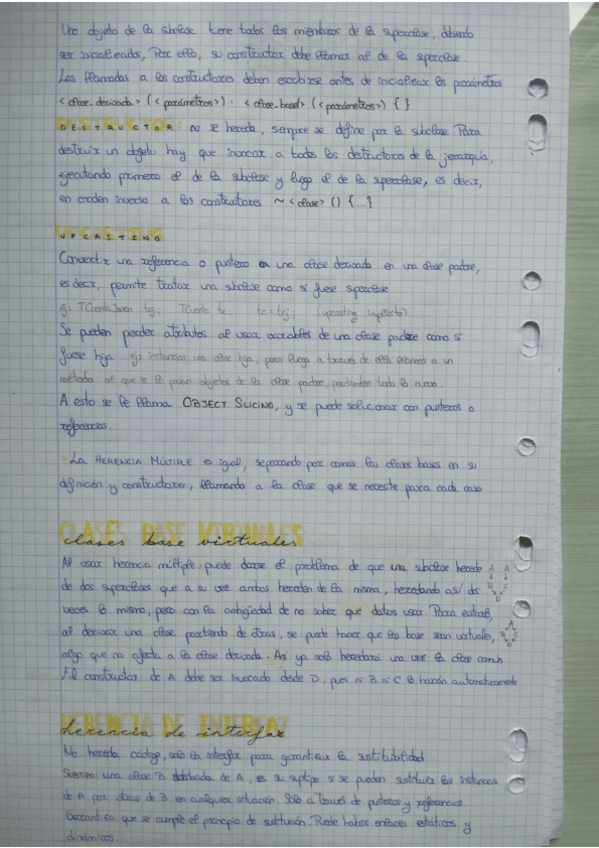 Uno objeto de la subclase tiene todos los miembros de la superclase, debiendo
ser inicializados, Por ello, su constructor debe llamar al de la superclase.
Las llamadas a los constructores deben escribirse antes de inicializar los parámetros
<clase_derivada> (<parámetros>) : <clase_base> (<parámetros>) { }
DESTRUCTOR: no se hereda, siempre se define por la subclase. Para
destruir un objeto hay que invocar a todos los destructores de la jerarquía,
ejecutando primero el de la subclase y luego el de la superclase, es decir,
en orden inverso a los constructores ~ <clase> () {...}
UPCASTING
Convertir una referencia o puntero a una clase derivada en una clase padre,
es decir, permite tratar una subclase como si fuese superclase
ej: TCuentaJoven tcj; TCuenta tc; tc = tcj; (upcasting implícito)
Se pueden perder atributos al usar variables de una clase padre como si
fuese hija ej: instancias una clase hija, para luego a través de ella llamas a un
método al que se le pasan objetos de la clase padre, perdiendo todo lo nuevo.
A esto se le llama OBJECT SLICING, y se puede solucionar con punteros o
referencias.
· LA HERENCIA MÚLTIPLE es igual, separando por comas las clases bases en su
definición y constructores, llamando a la clase que se necesite para cada caso
CLASES BASE VIRTUALES
clases base virtuales
Al usar herencia múltiple, puede darse el problema de que una subclase herede
de dos superclases que a su vez ambas heredan de la misma, heredando así dos
veces lo mismo, pero con la ambigüedad de no saber que datos usar. Para evitarlo,
al derivar una clase partiendo de otras, se puede hacer que las base sean virtuales,
algo que no afecta a la clase derivada. Así ya solo heredará una vez la clase común
El constructor de A debe ser invocado desde D, pues ni B ni C lo harán automáticamente
HERENCIA DE INTERFAZ
herencia de interfaz
No hereda código, solo la interfaz para garantizar la sustituibilidad
SUBTIPO: una clase B derivada de A, es su subtipo si se pueden sustituir las instancias
de A por otras de B en cualquier situación. Sólo a través de punteros y referencias.
Garantiza que se cumple el principio de sustitución. Puede haber enlaces estáticos y
dinámicos.